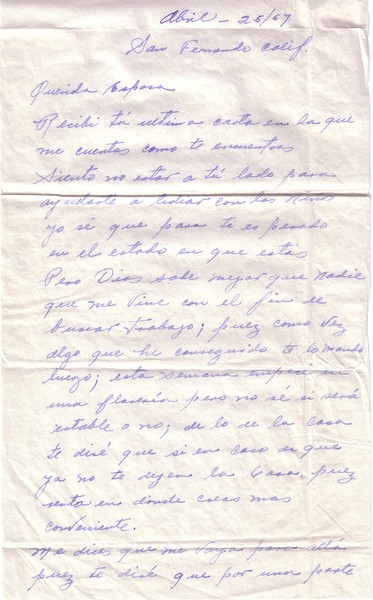 Abril - 25/57
San Fernando Calif.
Querida Esposa
Recibi tú ultima carta en la que
me cuentas como te encuentras
Siento no estar a tú lado para
ayudarte a lidiar con los niños
yo sé que para ti es pesado
en el estado en que estás
Pero Dios sabe mejor que nadie
que me vine con el fin de
buscar trabajo; puez como vez
algo que he conseguido te lo mando
luego; esta semana empiesé en
una
pero no sé si será
estable o no; de lo de la casa
te diré que si en caso de que
ya no te dejen la casa puez
renta en donde creas mas
conveniente.
Me dices que me vaya para allá
puez te diré que por una parte